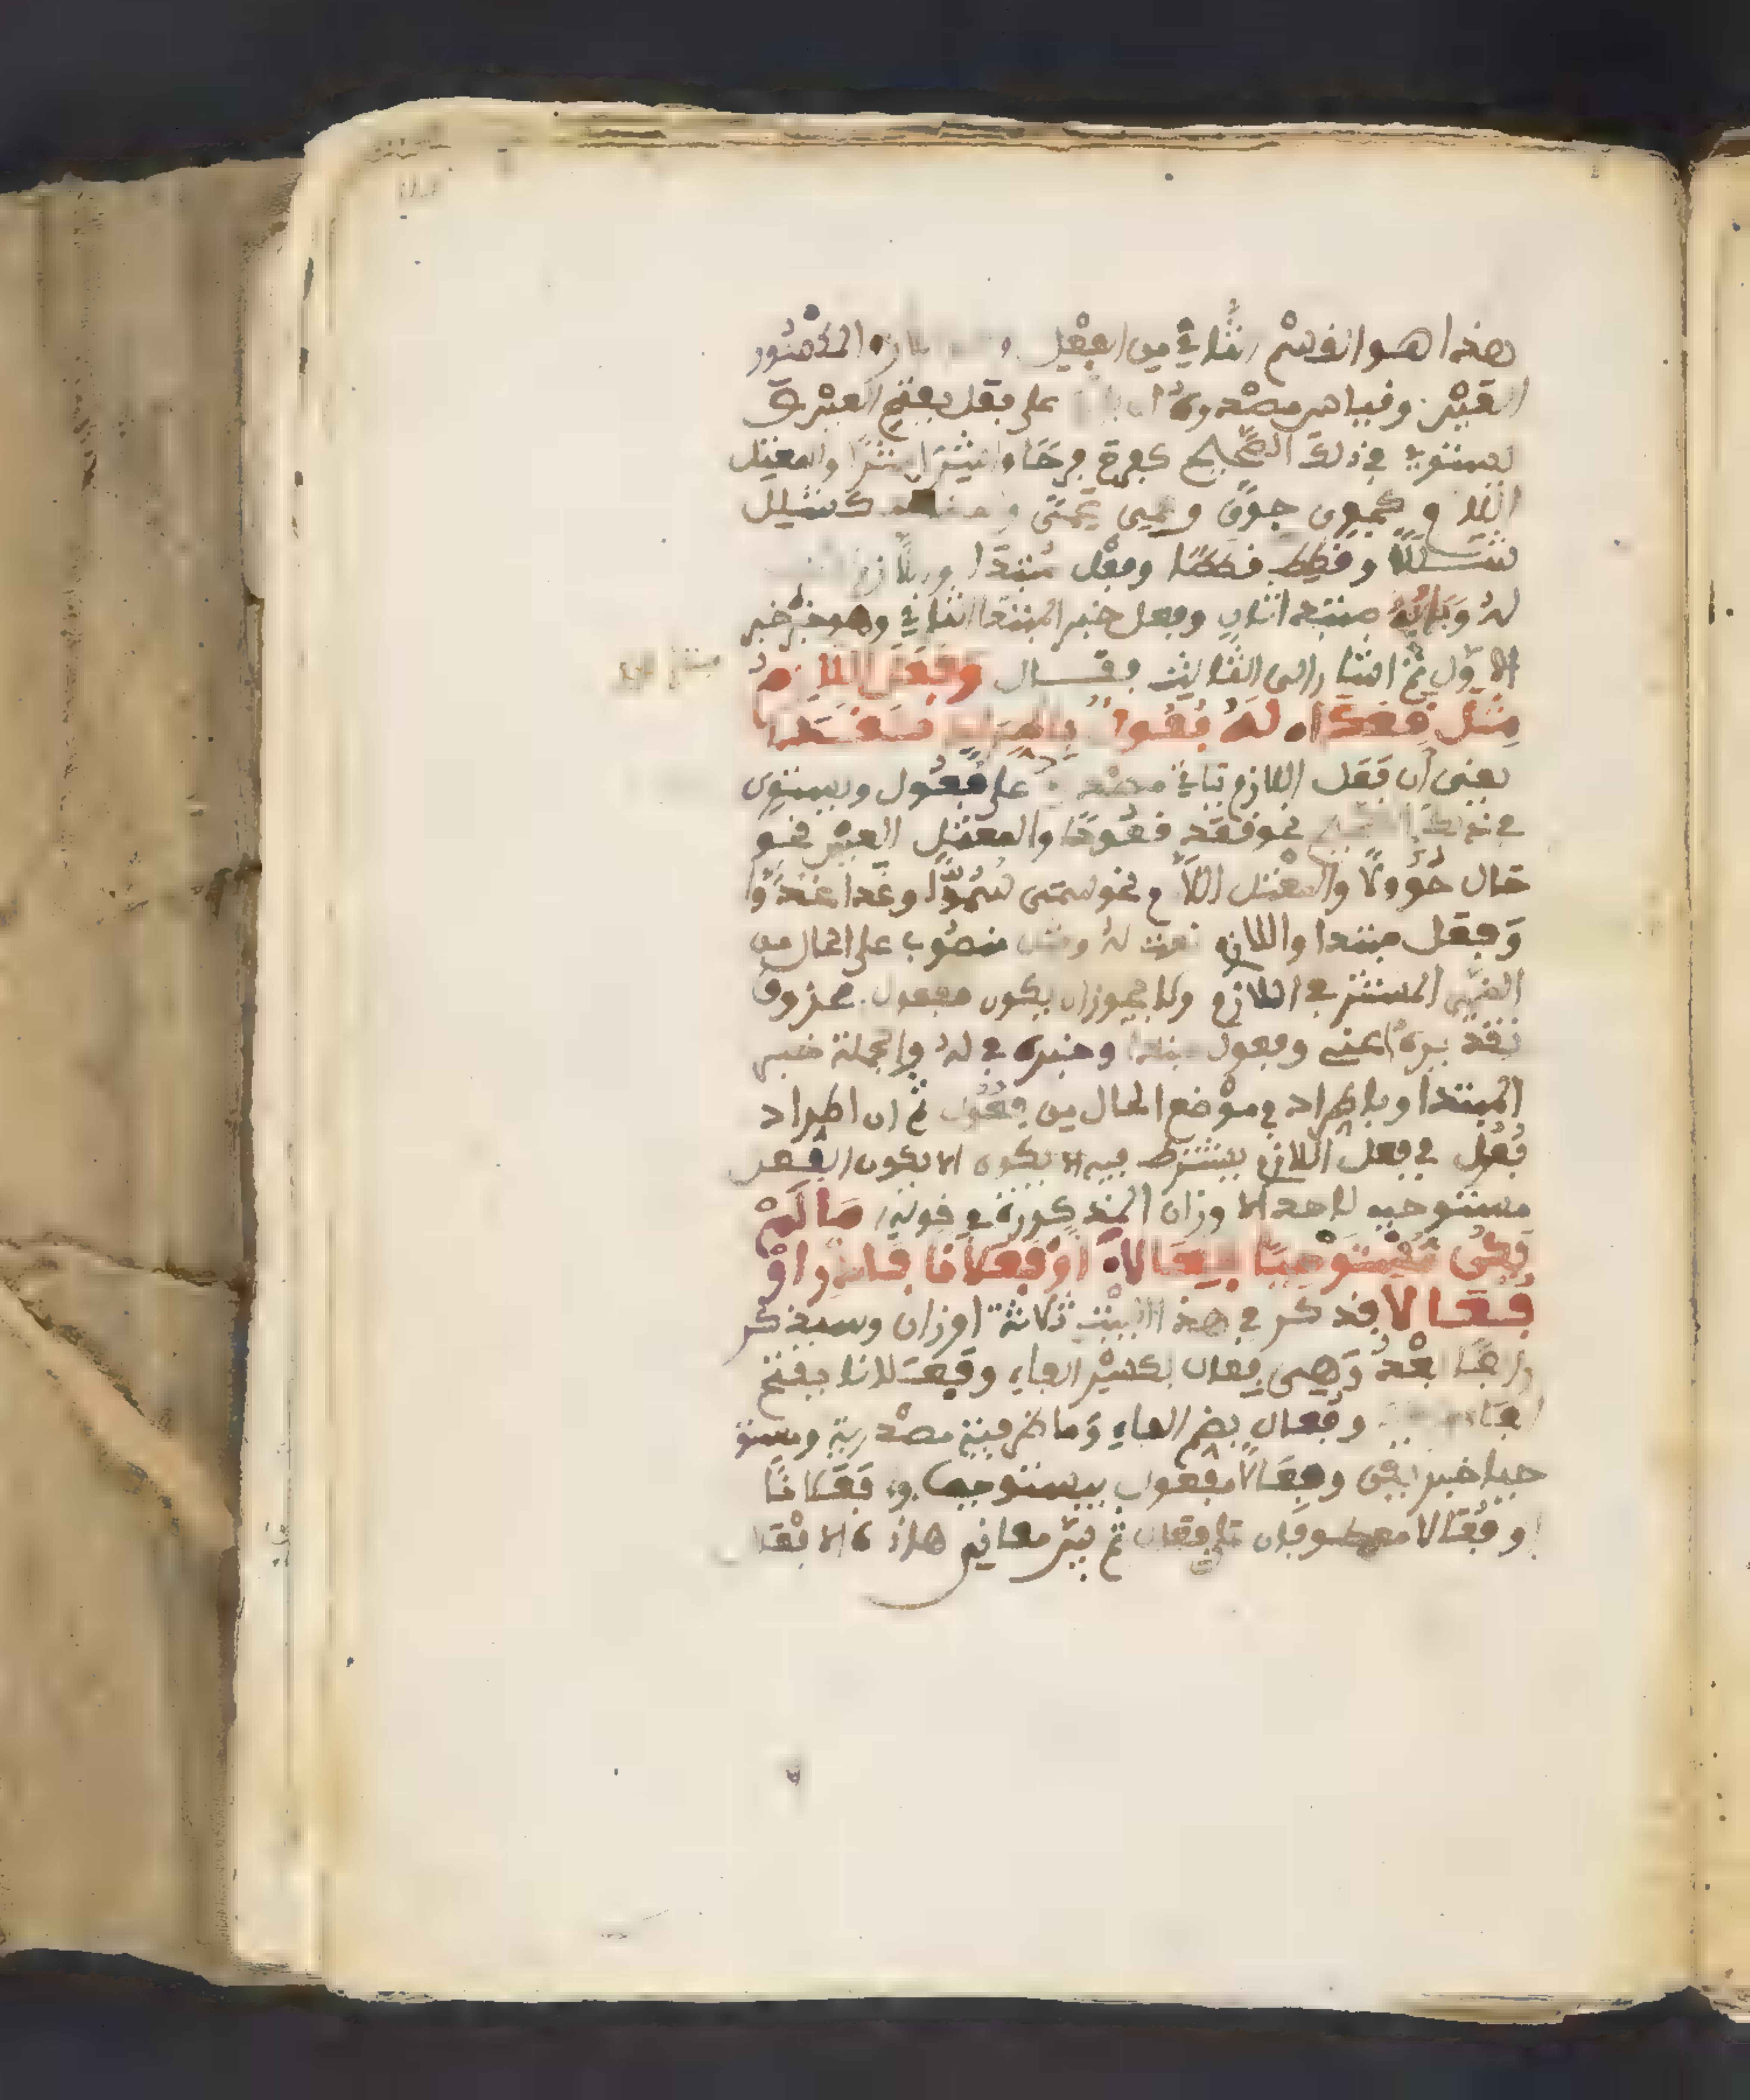 هذا هو القسم الثاني من الفعل المكسور
العين وقياس مصدره على فعل بفتح العين
يستوي في ذلك الصحيح كفرح فرحا واشر اشرا والمعتل
اللام كجوي جوى وعمي عمى كشلل
شللا وقطط قططا وفعل مبتدا
له وبابه مبتدا ثان وفعل خبر المبتدا الثاني وهو خبر
الاول ثم اشار الى الثالث فقال وفعل اللازم
مثل قعدا له فعول باطراد كغدا
يعني ان فعل اللازم ياتي مصدره على فعول ويستوي
في ذلك الصحيح نحو قعد قعودا والمعتل العين نحو
حال حوولا والمعتل اللام نحو سمى سموا وغدا غدوا
وفعل مبتدا واللازم نعت له ومثل منصوب على الحال من
الضمير المستتر في اللازم ولا يجوز ان يكون مفعول محذوف
تقديره اعني وفعول مبتدا وخبره في له والجملة خبر
المبتدا وباطراد في موضع الحال من فعول ثم ان اطراد
فعول في فعل اللازم يشترط فيه الا يكون الا يكون الفعل
مستوجبا لاحد الاوزان المذكورة في قوله ما لم
يكن مستوجبا فعالا او فعلانا فادر او
فعالا فذكر في هذا البيت ثلاثة اوزان وسيذكر
رابعا بعد وهي فعال بكسر الفاء وفعلانا بفتح
وفعال بضم الفاء وما ظرفية مصدرية ومستو
جبا خبر يكن وفعالا مفعول بمستوجبا و فعلانا
او فعالا معطوفان على فعال ثم بين معاني هاذه الافعال